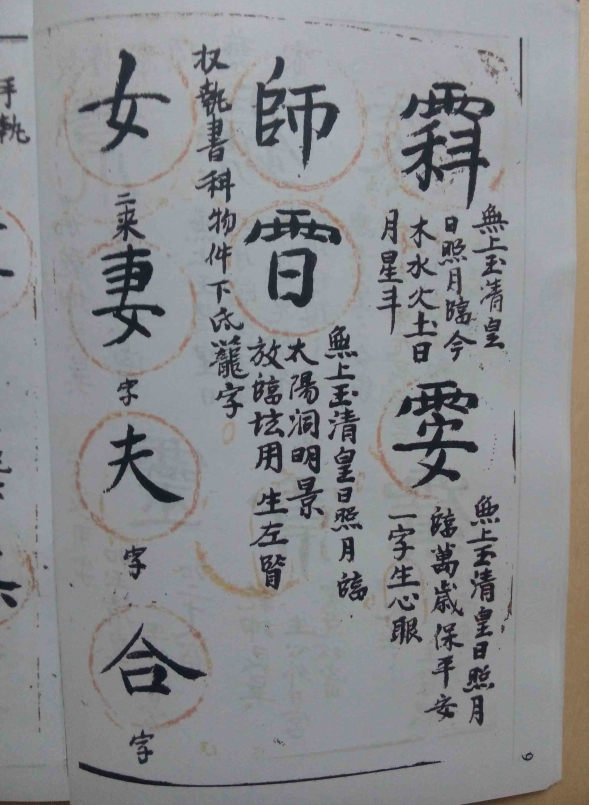 𩂇
無上玉清皇
日照月臨今
木水火土日
月星斗
䨥
無上玉清皇日照月
臨萬歲保平安
一字生心眼
師
無上玉清皇日照月臨
太陽洞明景
放臨坛用 生左腎
权執書科物件下氏籠字
女
二来
妻
字
夫
字
合
字
手執
6